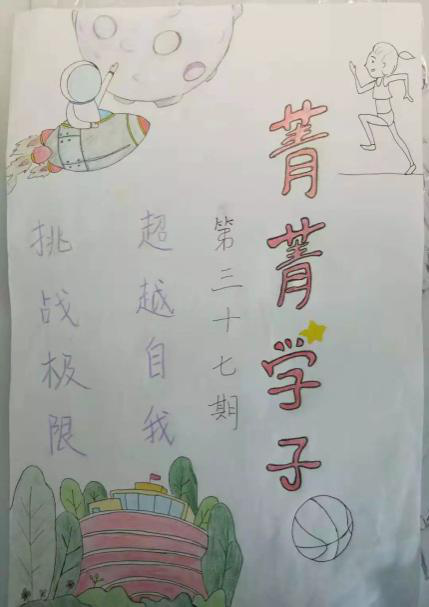 菁菁学子
第三十七期
超越自我
挑战极限